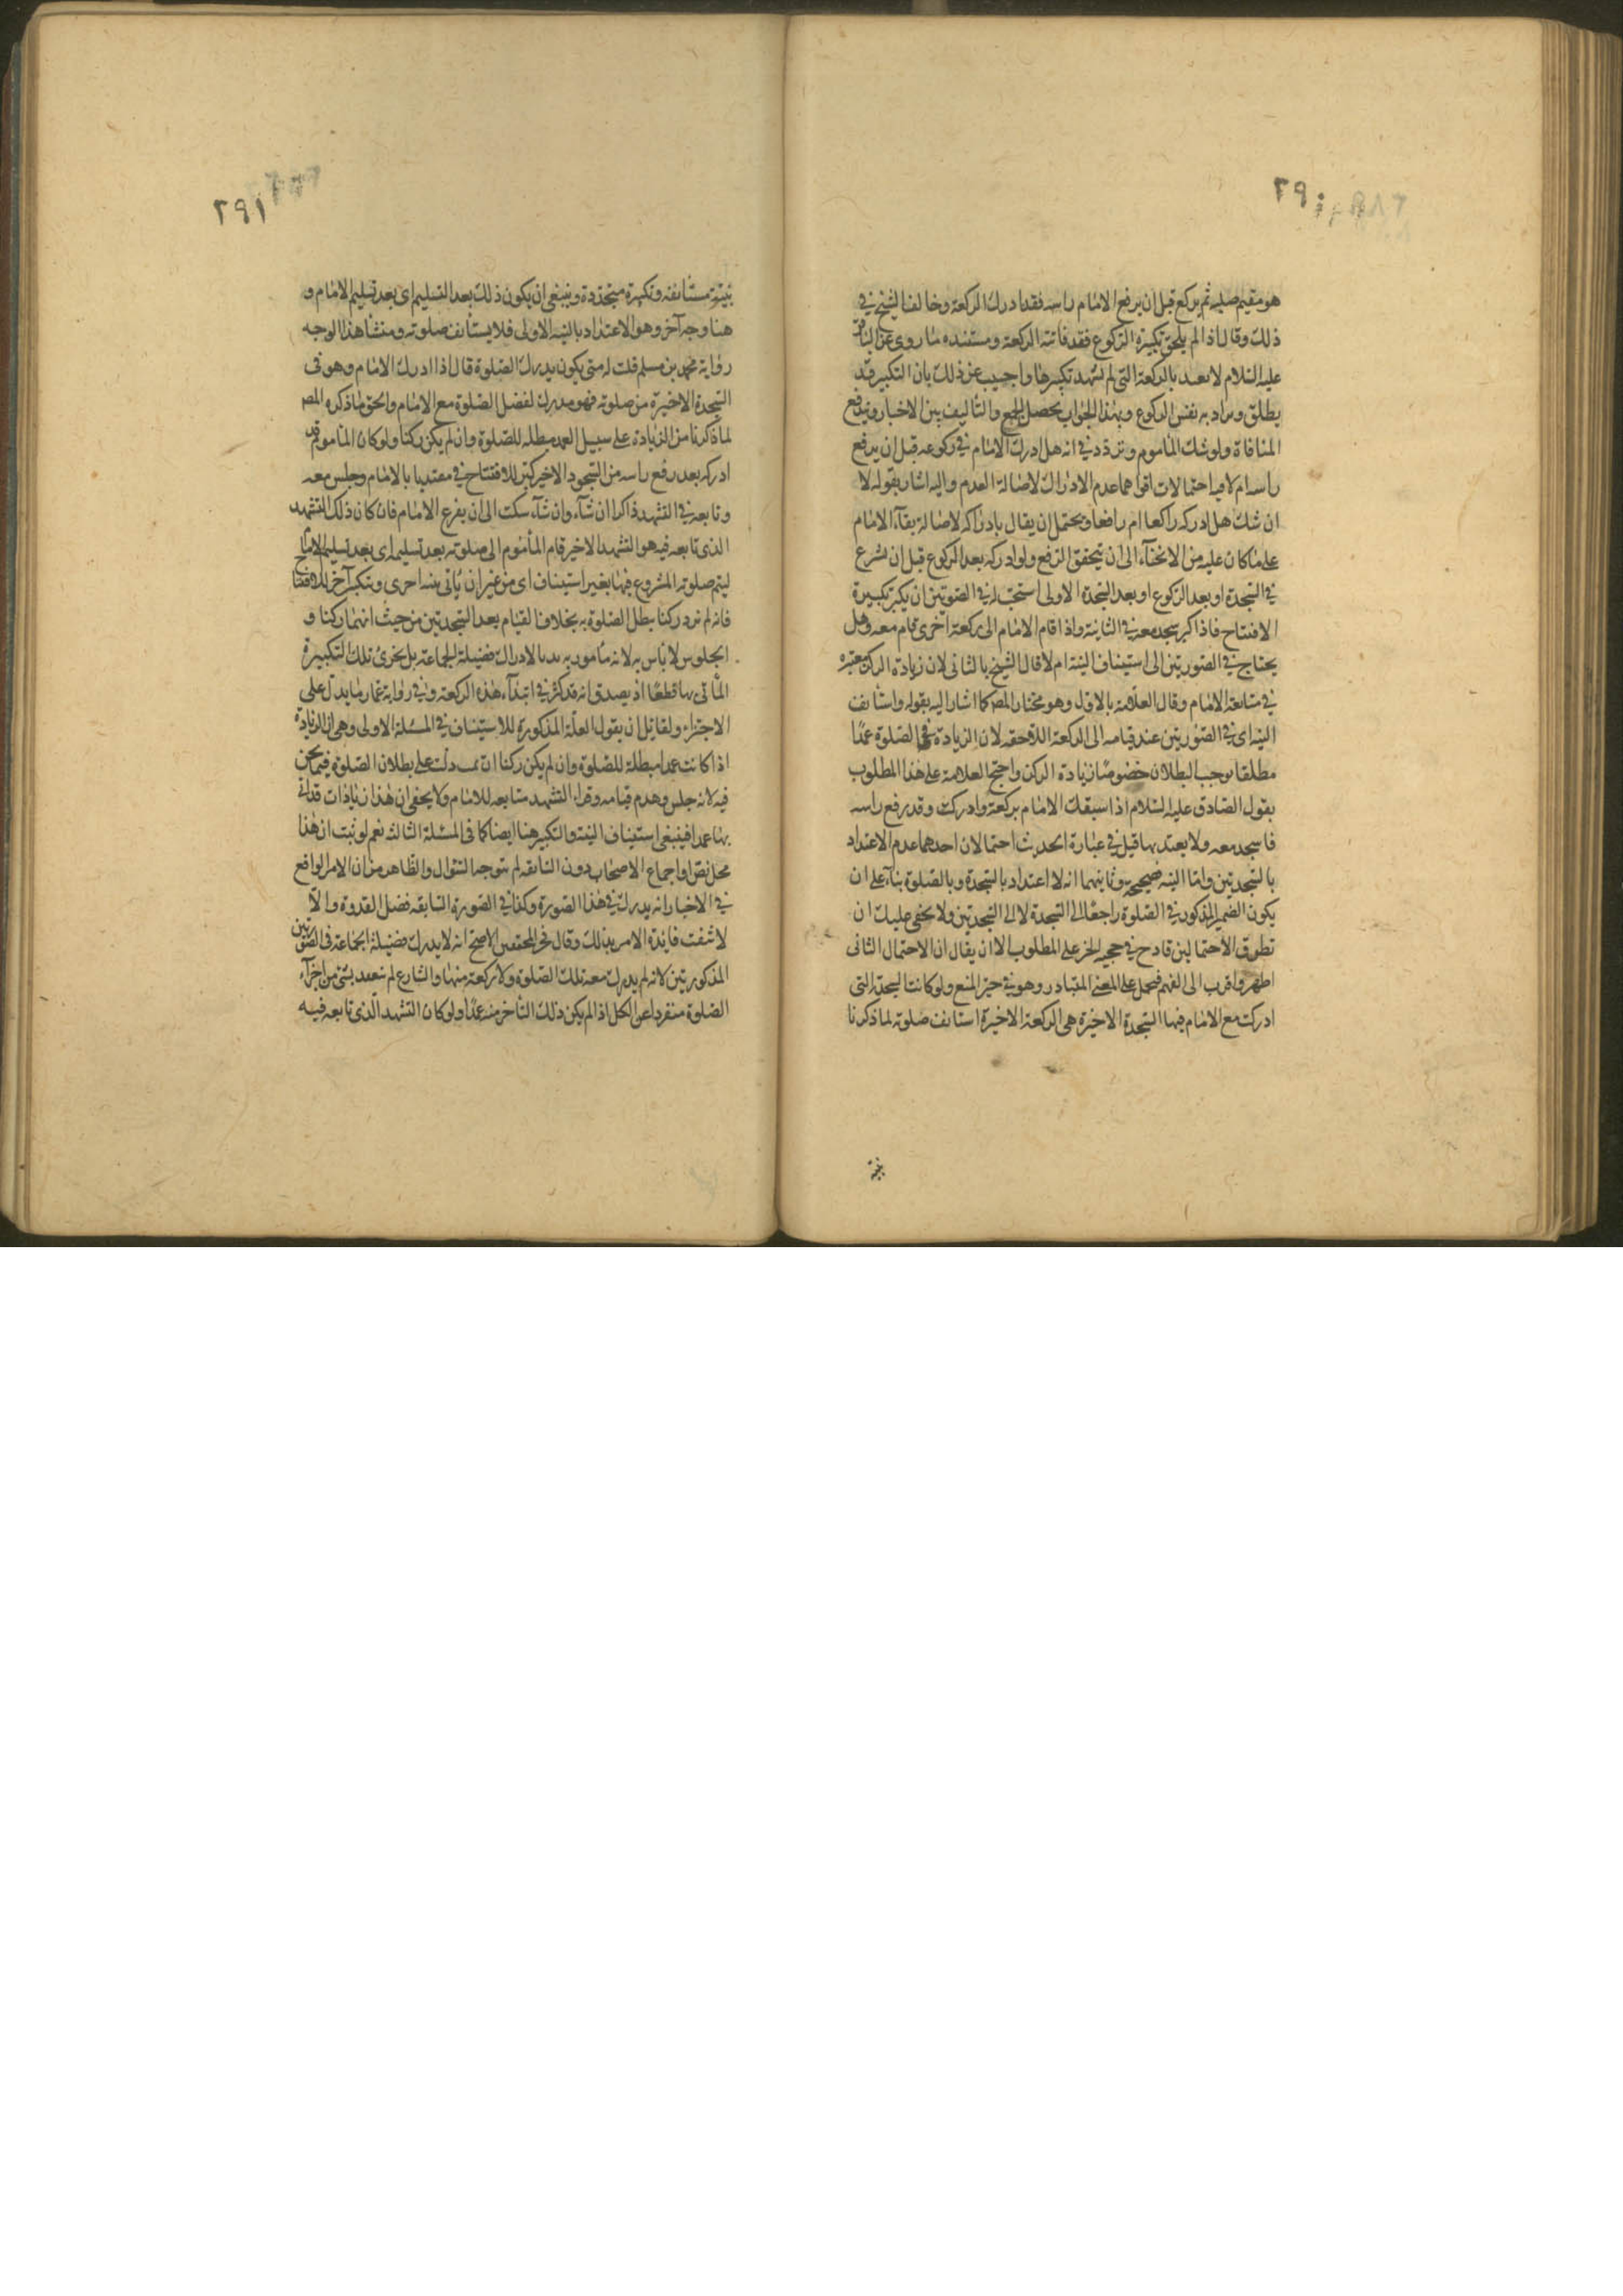 ٢٩٠
هو مقيم صلبه ثم يركع قبل ان يرفع الامام راسه فقد ادرك الركعة وخالف الشيخ في
ذلك وقال اذا لم يلحق تكبيرة الركوع فقد فاتته الركعة ومستنده ما روى عن الباقر
عليه السلام لا تعتد بالركعة التي لم تشهد تكبيرها واجيب عن ذلك بان التكبير قد
يطلق ويراد به نفس الركوع وبهذا الجواب يحصل الجمع والتاليف بين الاخبار ويندفع
المنافاة ولو شك الماموم وتردد في انه هل ادرك الامام في ركوعه قبل ان يرفع
راسه ام لا فيه احتمالات اقواهما عدم الادراك لاصالة العدم واليه اشار بقوله لا
ان شك هل ادركه راكعا ام رافعا ويحتمل ان يقال بادراكه لاصالة بقآء الامام
على ما كان عليه من الانحنآء الى ان يتحقق الرفع ولو ادركه بعد الركوع قبل ان شرع
في السجدة او بعد الركوع او بعد السجدة الاولى استحب له في الصورتين ان يكبر تكبيرة
الافتتاح فاذا كبر سجد معه في الثانية واذا قام الامام الى ركعة اخرى قام معه وهل
يحتاج في الصورتين الى استيناف النية ام لا قال الشيخ بالثاني لان زيادة الركن مغتفره
في متابعة الامام وقال العلامة بالاول وهو مختار المصـ كما اشار اليه بقوله واستانف
النية اى في الصورتين عند قيامه الى الركعة اللاحقه لان الزيادة في الصلوة عمدًا
مطلقا يوجب البطلان خصوصًا زيادة الركن واحتج العلامة على هذا المطلوب
بقول الصادق عليه السلام اذا سبقك الامام بركعة وادركت وقد رفع راسه
فاسجد معه ولا يعتد بها قيل في عبارة الحديث احتمالان احدهما عدم الاعتداد
بالسجدتين واما النيه فصحيحة وثانيهما انه لا اعتداد بالسجدة وبالصلوة بنآء على ان
يكون الضمير المذكور في الصلوة راجعًا الى السجدة لا الى السجدتين ولا يخفى عليك ان
تطرق الاحتمالين قادح في حجية الخبر على المطلوب الا ان يقال ان الاحتمال الثانى
اظهر واقرب الى الفهم فيحمل على المعنى المتبادر وهو في حيز المنع ولو كانت السجدة التى
ادركت مع الامام فيها السجدة الاخيرة هى الركعة الاخيرة استانف صلوته لما ذكرنا
بنية
٢٩١
بنية مستانفه وتكبيرة متجددة وينبغى ان يكون ذلك بعد التسليم اى بعد تسليم الامام و
هنا وجه آخر وهو الاعتداد بالنيه الاولى فلا يستأنف صلوته ومنشأ هذا الوجه
رواية محمد بن مسلم قلت له متى يكون يدرك الصلوة قال اذا ادرك الامام وهو فى
السجدة الاخيرة من صلوته فهو مدرك لفضل الصلوة مع الامام والحق ما ذكره المصـ
لما ذكرنا من الزيادة على سبيل العمد مبطله للصلوة وان لم يكن ركنا ولو كان الماموم قد
ادركه بعد رفع راسه من السجود الاخير كبر للافتتاح في مقتديا بالامام وجلس معه
وتابعه في التشهد ذاكرا ان شآء وان شآء سكت الى ان يفرغ الامام فان كان ذلك التشهد
الذى تابعه فيه هو التشهد الاخير قام المأموم الى صلوته بعد تسليمه اى بعد تسليم الامام
ليتم صلوته المشروع فيها بغير استيناف اى من غير ان يأتى بنيه اخرى وبتكبر آخر للافتتاح
فانه لم يزد ركنا يبطل الصلوة به بخلاف القيام بعد السجدتين من حيث انهما ركنا و
الجلوس لا بأس به لانه مأمور به لادراك فضيلة الجماعة بل يجزى تلك التكبيرة
المأتى بها قطعًا اذ يصدق انه قد كبر في ابتدآء هذه الركعة وفي رواية عمار ما يدل على
الاجتزاء ولقائل ان يقول العلة المذكورة للاستيناف في المسئلة الاولى وهى ان الزيادة
اذا كانت عمدا مبطلة للصلوة وان لم يكن ركنا ان تمت دلت على بطلان الصلوة فيما نحن
فيه لانه جلس وهدم قيامه وقراء التشهد متابعه للامام ولا يخفى ان هذا زيادات قد اتى
بها عمدا فينبغى استيناف النية والتكبير هنا ايضا كما فى المسئلة الثالثه نعم لو ثبت ان هذا
محل نص او اجماع الاصحاب دون السابقه لم يتوجه السؤال والظاهر من ان الامر الواقع
في الاخبار انه يدرك في هذا الصورة وكذا في الصورة السابقه فضل القدوة والّا
لانتفت فايدة الامر بذلك وقال فخر المحققين الاصح انه لا يدرك فضيلة الجماعة فى الصورتين
المذكورتين لانه لم يدرك معه تلك الصلوة ولا ركعة منها والشارع لم يتعبد بشئ من اجزآء
الصلوة منفردا عن الكل اذا لم يكن ذلك التأخر منه عمدًا ولو كان التشهد الذى تابعه فيه